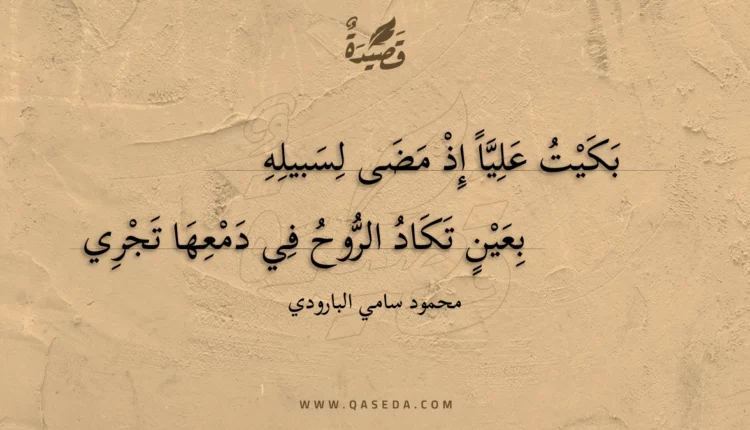 قَصِيدَةٌ
بَكَيْتُ عَلِيَّاً إِذْ مَضَى لِسَبيلِهِ
بِعَيْنٍ تَكَادُ الرُّوحُ فِي دَمْعِهَا تَجْرِي
محمود سامي البارودي
WWW.QASEDA.COM